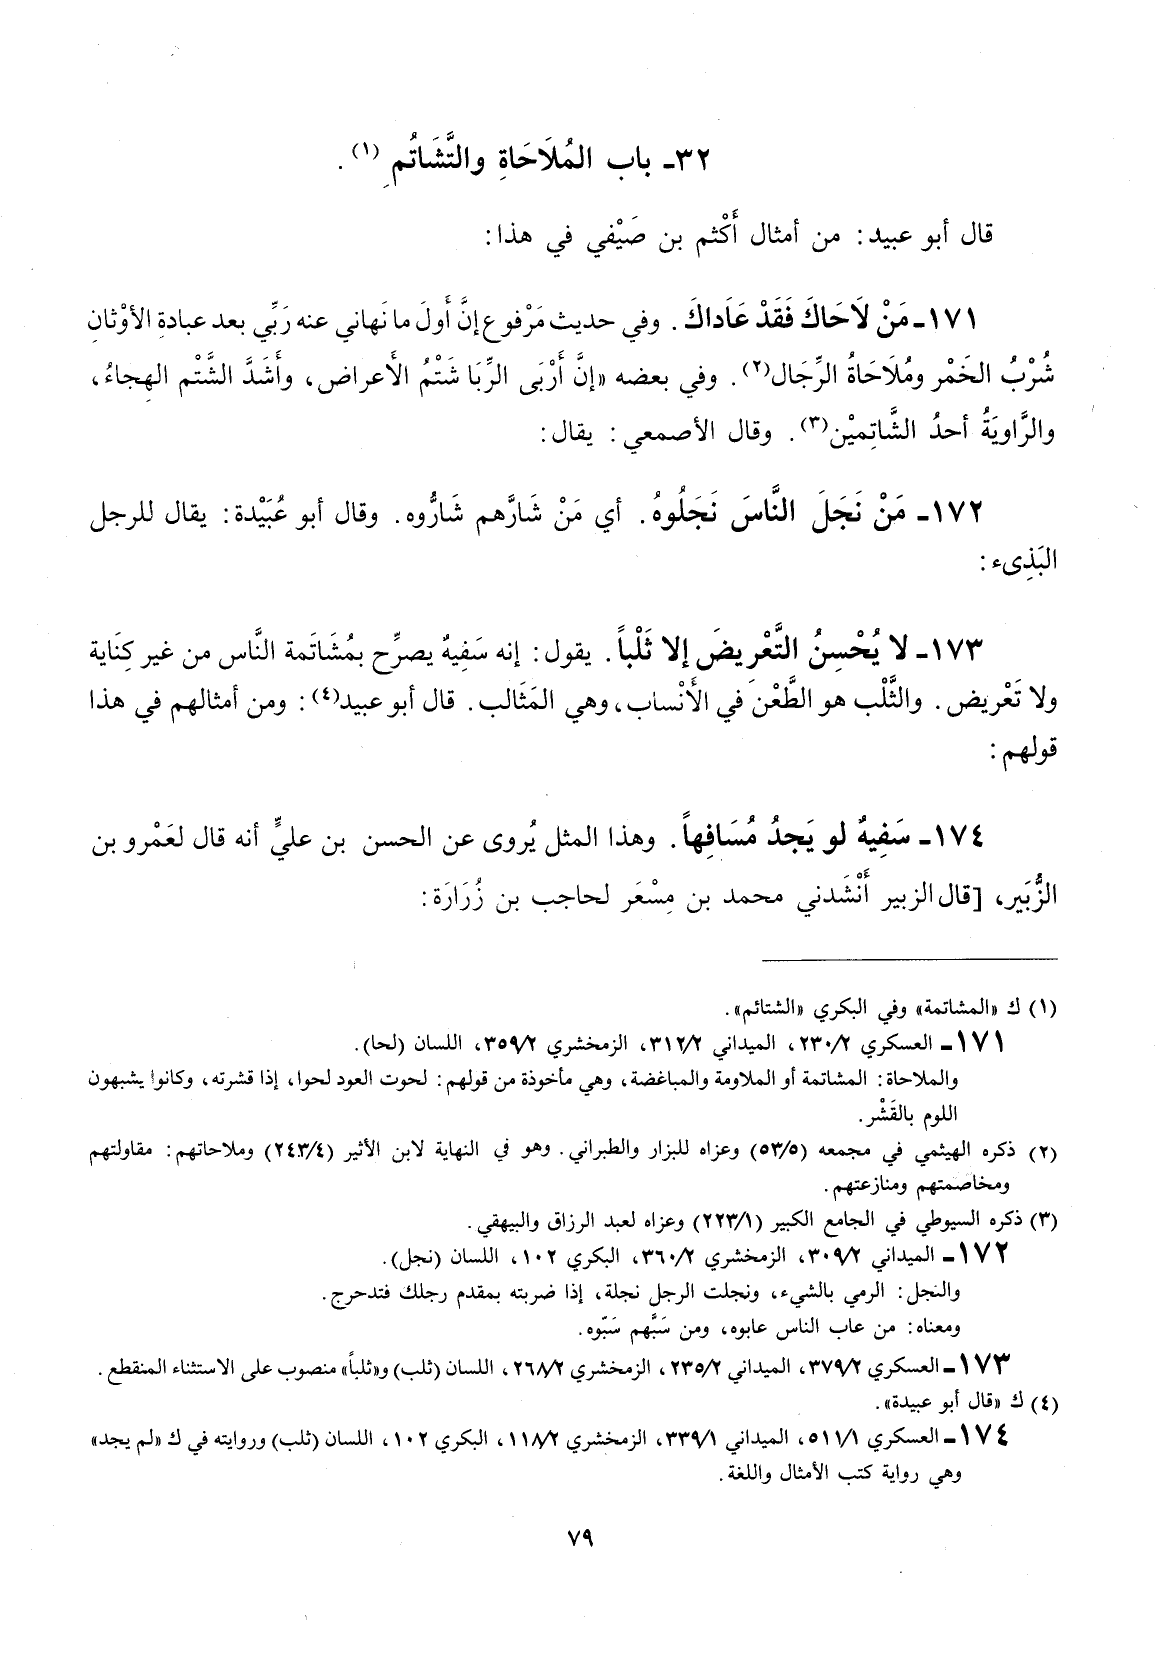 ٣٢ـ باب المُلَاحَاةِ والتَّشَاتُمِ (١).
قال أبو عبيد: من أمثال أَكْثم بن صَيْفي في هذا:
١٧١ـ مَنْ لَاحَاكَ فَقَدْ عَاداكَ. وفي حديث مَرْفوع إنَّ أَولَ ما نَهاني عنه رَبِّي بعد عبادةِ الأوْثانِ
شُرْبُ الخَمْر ومُلَاحَاةُ الرِّجَال(٢). وفي بعضه «إنَّ أَرْبَى الرِّبَا شَتْمُ الأَعراض، وأَشَدَّ الشَّتْم الهِجاءُ،
والرَّاويَةُ أحدُ الشَّاتِمِيْن(٣). وقال الأصمعي: يقال:
١٧٢ـ مَنْ نَجَلَ النَّاسَ نَجَلُوهُ. أي مَنْ شَارَّهم شَارُّوه. وقال أبو عُبَيْدة: يقال للرجل
البَذِىء:
١٧٣ـ لا يُحْسِنُ التَّعْريضَ إلا ثَلْباً. يقول: إنه سَفِيهٌ يصرِّح بمُشَاتَمة النَّاس من غير كِنَاية
ولا تَعْريض. والثَّلْب هو الطَّعْنَ في الأَنْساب، وهي المَثَالب. قال أبو عبيد(٤): ومن أمثالهم في هذا
قولهم:
١٧٤ـ سَفِيهٌ لو يَجدُ مُسَافِهاً. وهذا المثل يُروى عن الحسن بن عليٍّ أنه قال لعَمْرو بن
الزُّبَير، [قال الزبير أَنْشَدني محمد بن مِسْعَر لحاجب بن زُرَارَة:
(١) ك «المشاتمة» وفي البكري «الشتائم».
١٧١ـ العسكري ٢٣٠/٢، الميداني ٣١٢/٢، الزمخشري ٣٥٩/٢، اللسان (لحا).
والملاحاة: المشاتمة أو الملاومة والمباغضة، وهي مأخوذة من قولهم: لحوت العود لحوا، إذا قشرته، وكانوا يشبهون
اللوم بالقَشْر.
(٢) ذكره الهيثمي في مجمعه (٥٣/٥) وعزاه للبزار والطبراني. وهو في النهاية لابن الأثير (٢٤٣/٤) وملاحاتهم: مقاولتهم
ومخاصمتهم ومنازعتهم.
(٣) ذكره السيوطي في الجامع الكبير (٢٢٣/١) وعزاه لعبد الرزاق والبيهقي.
١٧٢ـ الميداني ٣٠٩/٢، الزمخشري ٣٦٠/٢، البكري ١٠٢، اللسان (نجل).
والنجل: الرمي بالشيء، ونجلت الرجل نجلة، إذا ضربته بمقدم رجلك فتدحرج.
ومعناه: من عاب الناس عابوه، ومن سَبَّهم سَبّوه.
١٧٣ـ العسكري ٣٧٩/٢، الميداني ٢٣٥/٢، الزمخشري ٢٦٨/٢، اللسان (ثلب) و«ثلباً» منصوب على الاستثناء المنقطع.
(٤) ك «قال أبو عبيدة».
١٧٤ـ العسكري ٥١١/١، الميداني ٣٣٩/١، الزمخشري ١١٨/٢، البكري ١٠٢، اللسان (ثلب) وروايته في ك «لم يجد»
وهي رواية كتب الأمثال واللغة.
٧٩